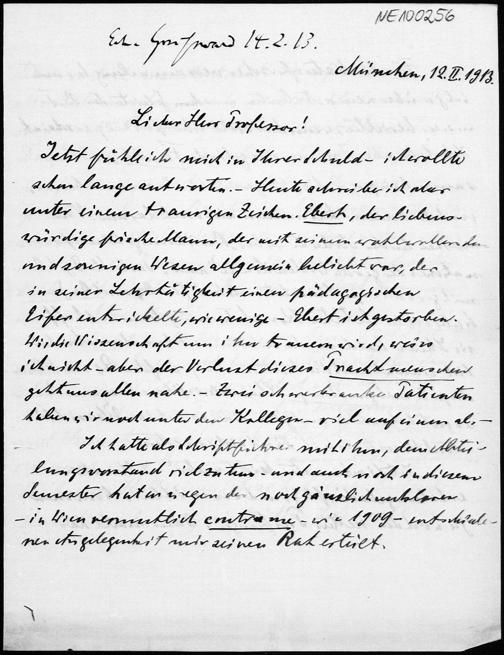 NE100256
Erh. Greifswald 14.2.13.
München, 12.II.1913.
Lieber Herr Professor!
Jetzt fühl ich mich in Ihrer Schuld – ich wollte
schon lange antworten. – Heute schreibe ich aber
unter einem traurigen Zeichen. Ebert, der liebens-
würdige frische Mann, der mit seinem wohlwollenden
und sonnigen Wesen allgemein beliebt war, der
in seiner Lehrtätigkeit einen pädagogischen
Eifer entwickelte, wie wenige – Ebert ist gestorben.
Wie die Wissenschaft um ihn trauern wird, weiss
ich nicht – aber der Verlust dieses Prachtmenschen
geht uns allen nahe. – Zwei schwerkranke Patienten
haben wir noch unter den Kollegen – viel auf einmal –
Ich hatte als Schriftführer mit ihm, dem Abtei-
lungsvorstand viel zu tun – und auch noch in diesem
Semester hat er wegen der noch gänzlich unklaren
– in Wien vermutlich contra me – wie 1909 – entschiede-
nen Angelegenheit mir seinen Rat erteilt.